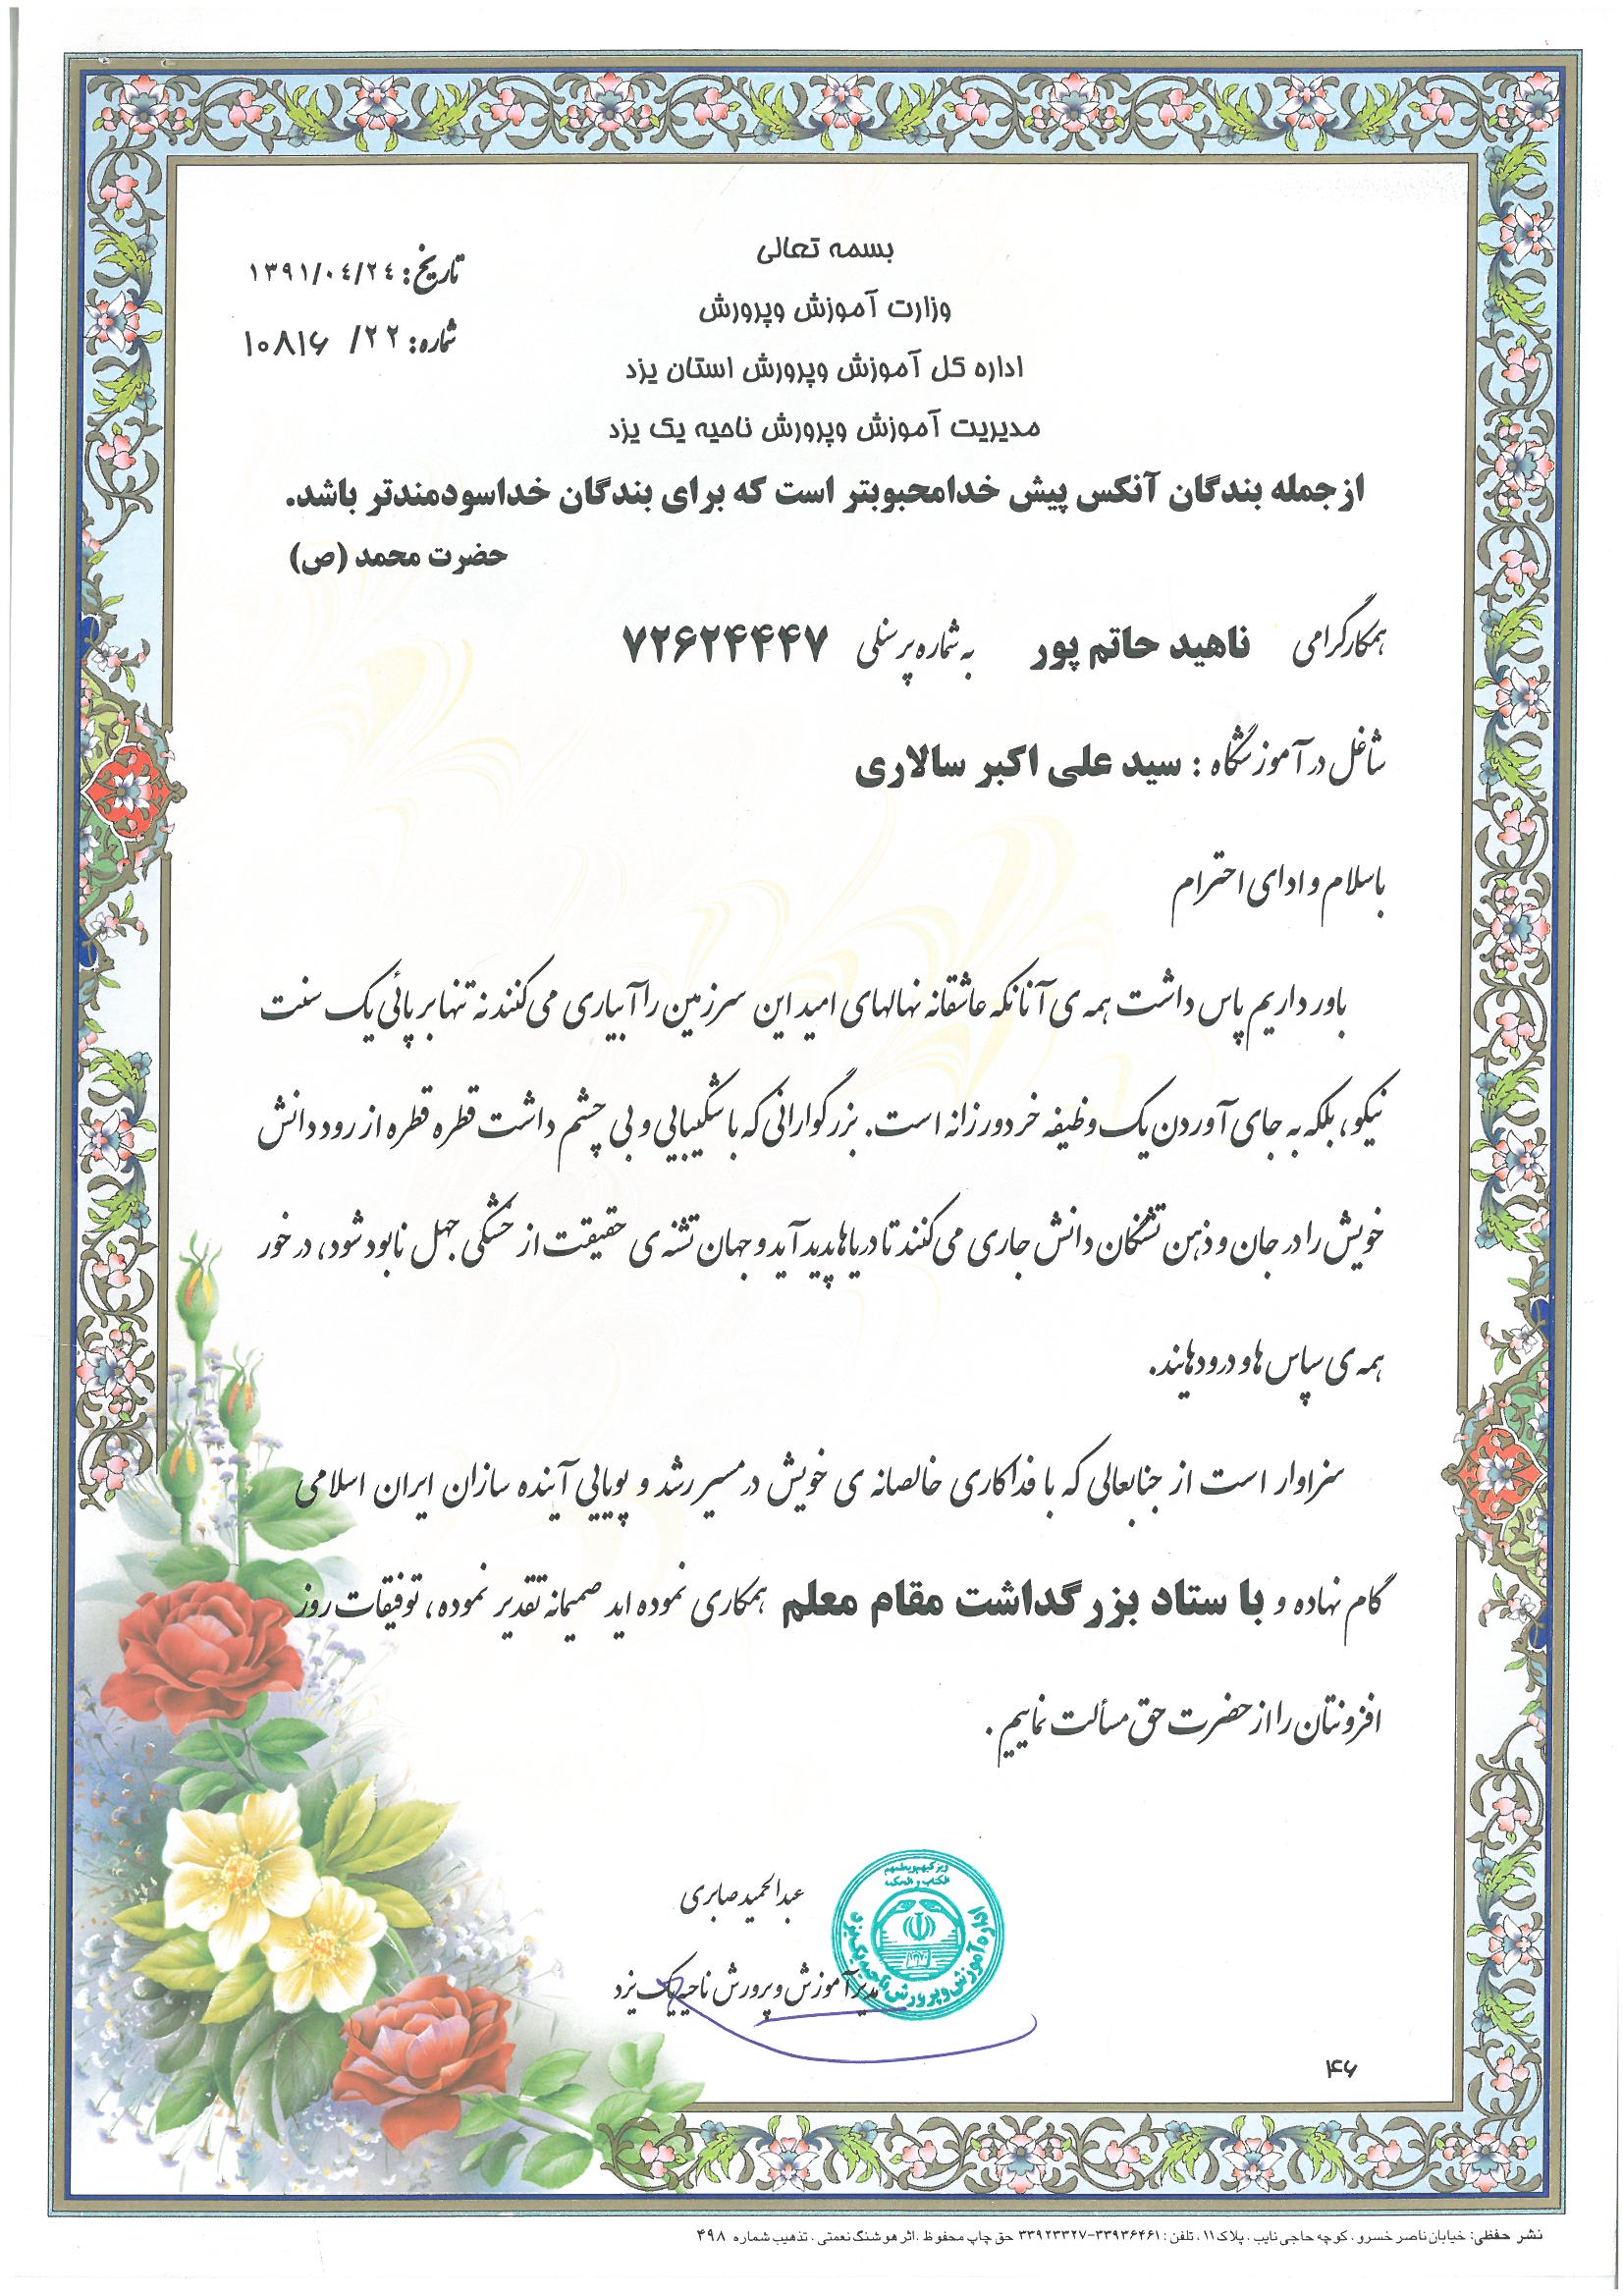 بسمه تعالی
وزارت آموزش وپرورش
اداره کل آموزش وپرورش استان یزد
مدیریت آموزش وپرورش ناحیه یک یزد
تاریخ: ۱۳۹۱/۰۴/۲۴
شماره: ۲۲/ ۱۰۸۱۶
ازجمله بندگان آنکس پیش خدامحبوبتر است که برای بندگان خداسودمندتر باشد.
حضرت محمد (ص)
همکارگرامی ناهید حاتم پور به شماره پرسنلی ۷۲۶۲۴۴۴۷
شاغل در آموزشگاه : سید علی اکبر سالاری
باسلام و ادای احترام
باور داریم پاس داشت همه ی آنانکه عاشقانه نهالهای امید این سرزمین را آبیاری می کنند نه تنها برپائی یک سنت
نیکو، بلکه به جای آوردن یک وظیفه خردورزانه است. بزرگوارانی که با شکیبایی و بی چشم داشت قطره قطره از رود دانش
خویش را در جان و ذهن تشنگان دانش جاری می کنند تا دریاها پدید آید و جهان تشنه ی حقیقت از خشکی جهل نابود شود، در خور
همه ی سپاس ها و درودهایند.
سزاوار است از جنابعالی که با فداکاری خالصانه ی خویش در مسیر رشد و پویایی آینده سازان ایران اسلامی
گام نهاده و با ستاد بزرگداشت مقام معلم همکاری نموده اید صمیمانه تقدیر نموده، توفیقات روز
افزونتان را از حضرت حق مسألت نماییم .
عبدالحمید صابری
مدیر آموزش و پرورش ناحیه یک یزد
ویزکیهم ویعلمهم
الکتاب والحکمه
اداره آموزش و پرورش ناحیه یک یزد
۴۶
نشر حفظی: خیابان ناصر خسرو ، کوچه حاجی نایب ، پلاک ۱۱ ، تلفن : ۳۳۹۳۶۴۶۱-۳۳۹۲۳۳۲۷ حق چاپ محفوظ ، اثر هوشنگ نعمتی ، تذهیب شماره ۴۹۸